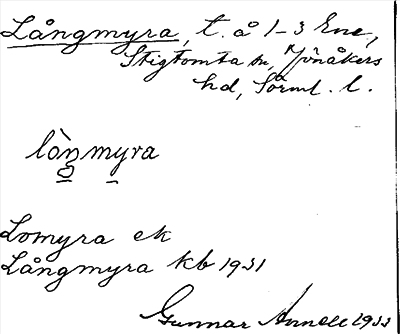 Långmyra, t. å 1–3 Ene,
Stigtomta sn, Jönåkers
hd, Sörml. l.
lòŋmyra
Lomyra ek
Långmyra kb 1931
Gunnar Annell 1933